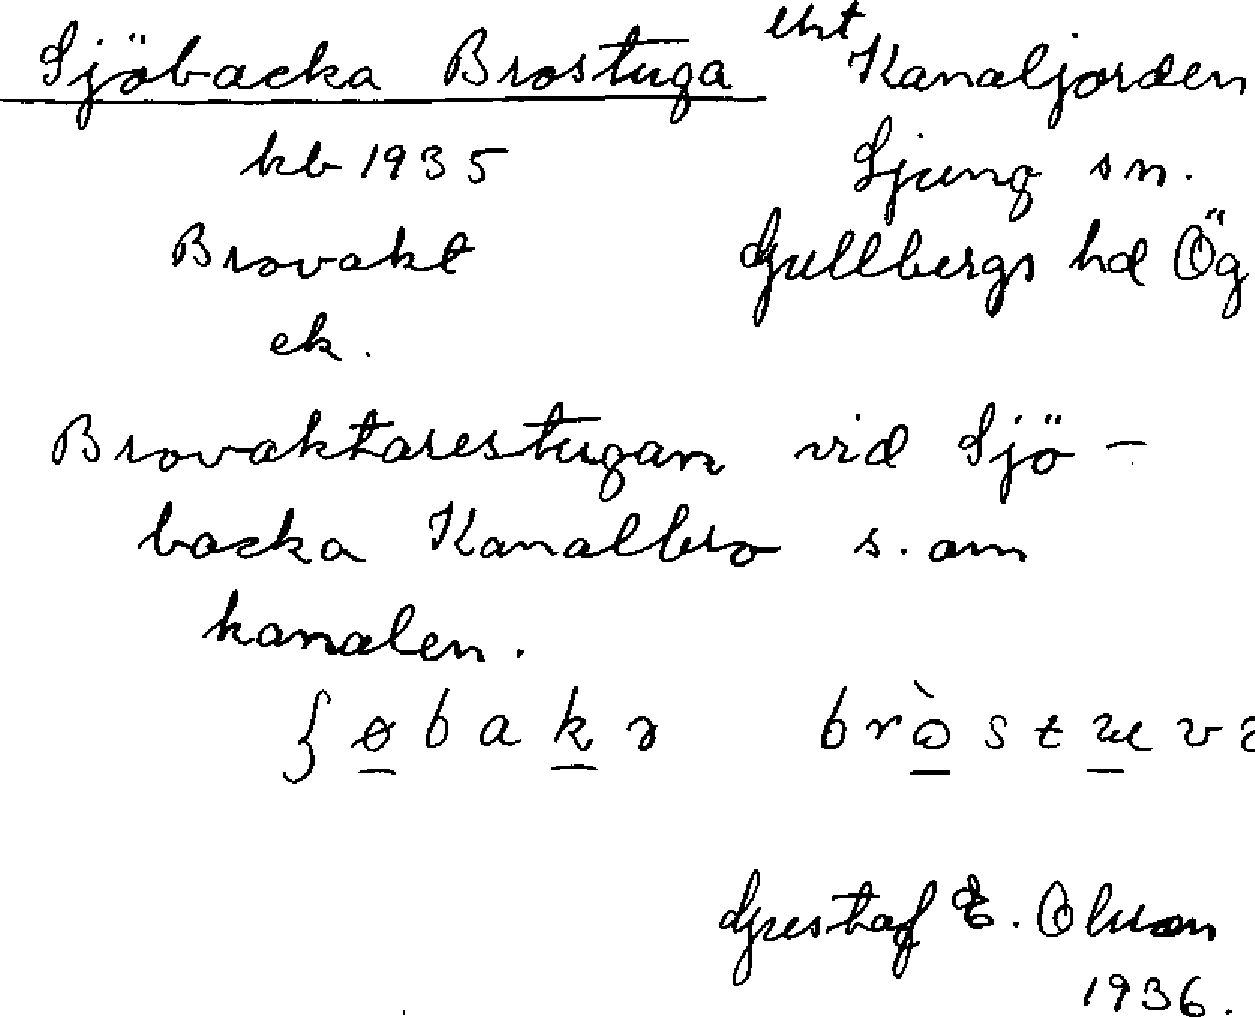 Sjöbacka Brostuga lht Kanaljorden
kb 1935 Ljung sn.
Brovakt Gullbergs hd Ög
ek.
Brovaktarestugan vid Sjö-
backa Kanalbro s. om
kanalen.
ʃøbakə bròstuvə
Gustaf E. Olsson
1936.